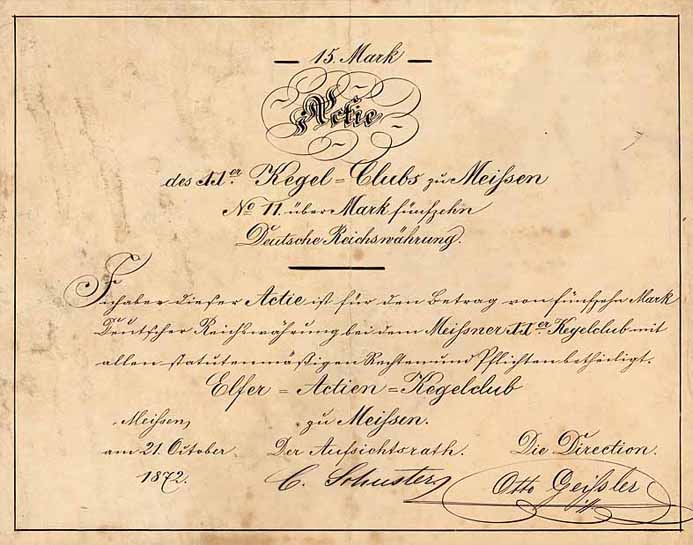 — 15. Mark —
Actie
des 11er. Kegel=Clubs zu Meißen
No 11. über Mark fünfzehn
Deutsche Reichswährung.
Inhaber dieser Actie ist für den Betrag von fünfzehn Mark
Deutscher Reichswährung bei dem Meißner 11er Kegelclub mit
allen statutenmäßigen Rechten und Pflichten betheiligt.
Elfer=Actien=Kegelclub
zu Meißen.
Meißen,
am 21. October.
1872.
Der Aufsichtsrath.
C. Schuster
Die Direction.
Otto Geißler